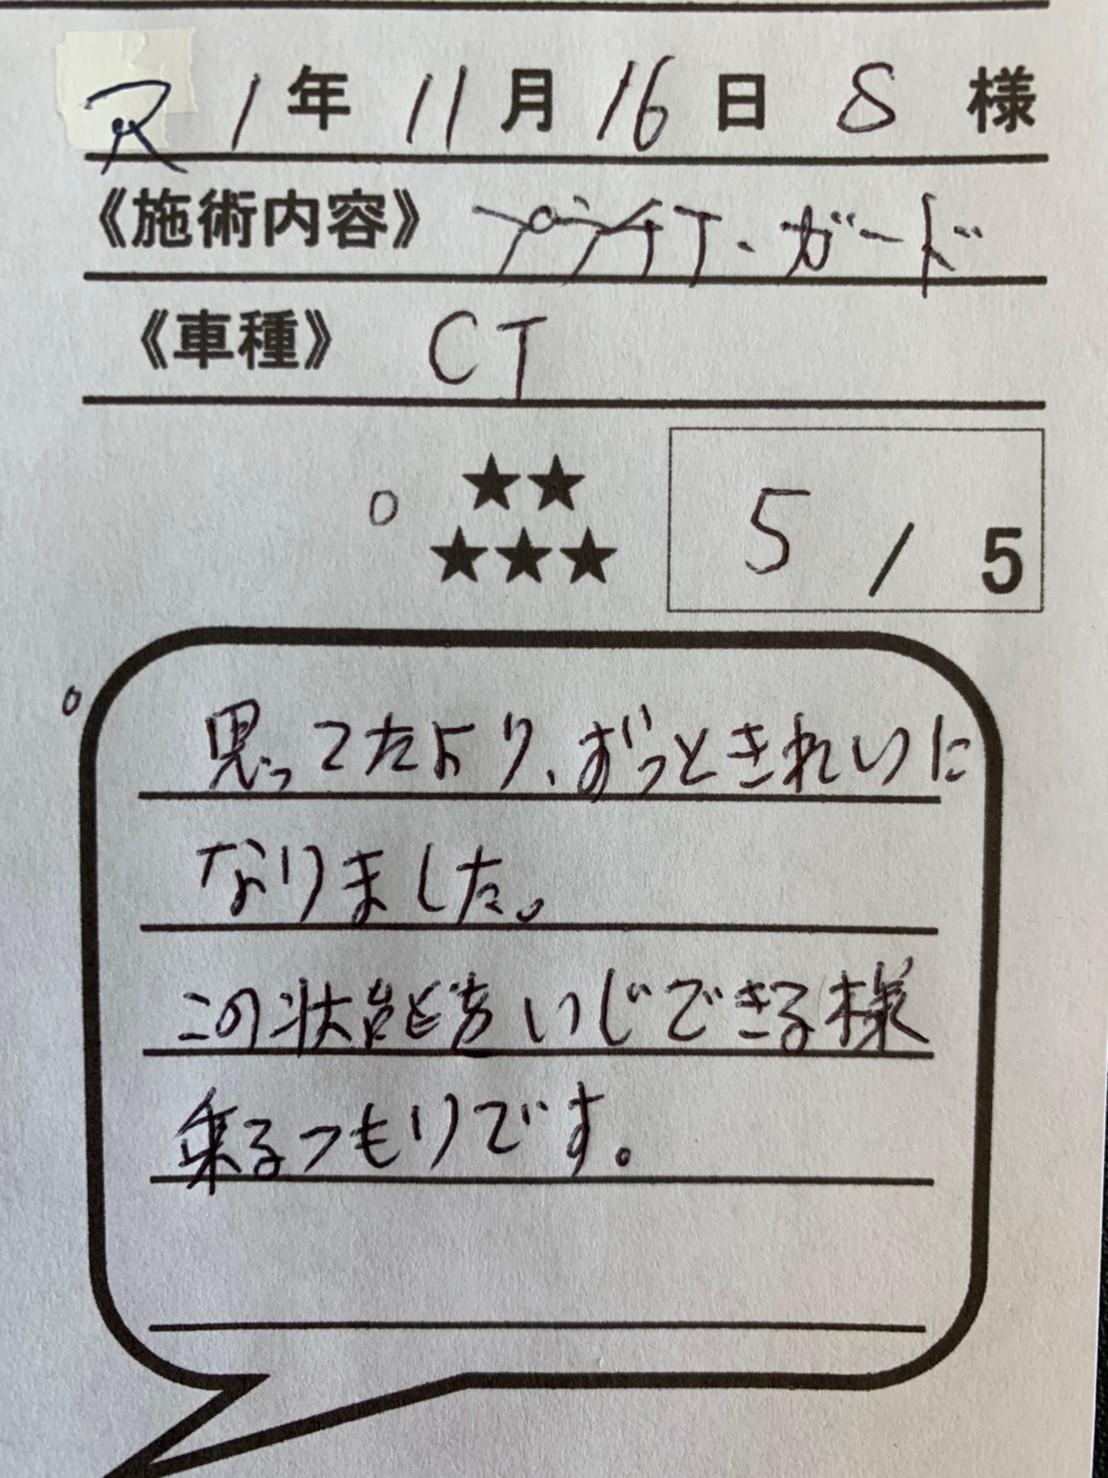 R 1年 11月 16日 S 様
《施術内容》 プラチナ・ガード
《車種》 CT
★★
★★★
5 / 5
思ってたより、ずっときれいに
なりました。
この状態をいじできる様
乗るつもりです。